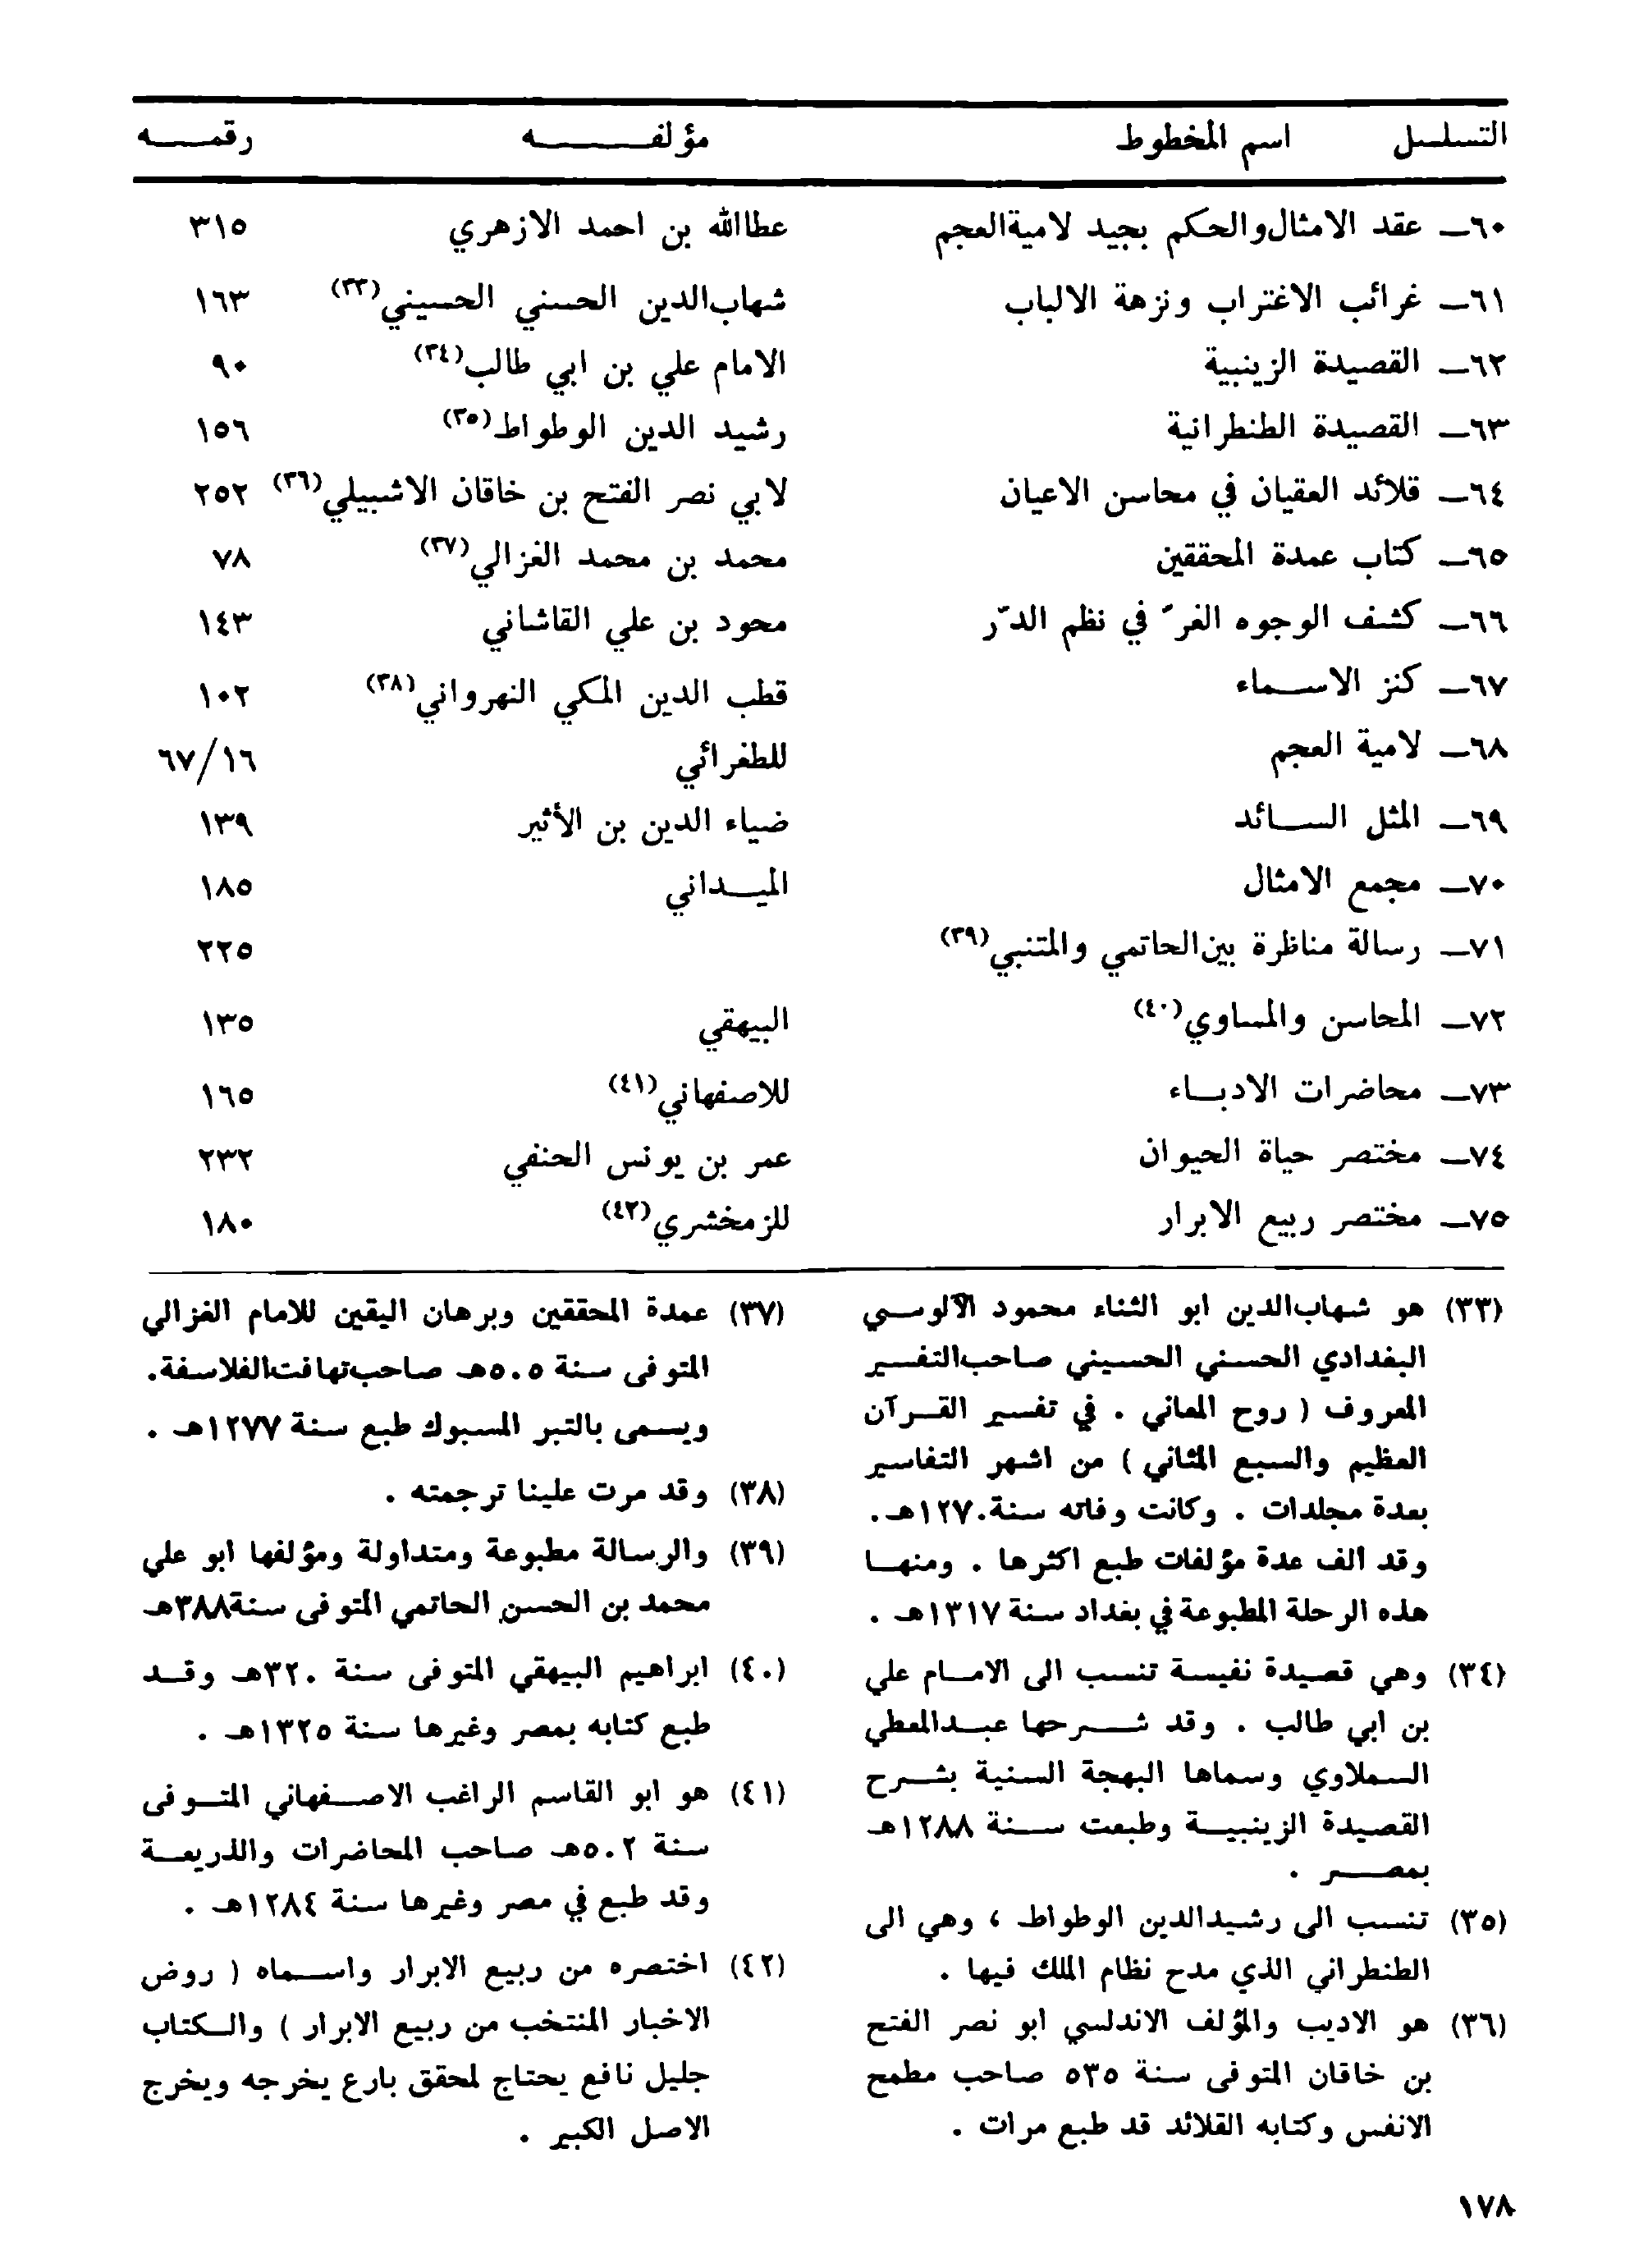 التسلسل اسم المخطوط مؤلفه رقمه
٦٠ـ عقد الامثال والحكم بجيد لامية العجم عطاالله بن احمد الازهري ٣١٥
٦١ـ غرائب الاغتراب ونزهة الالباب شهاب‌الدين الحسني الحسيني(٣٣) ١٦٣
٦٢ـ القصيدة الزينبية الامام علي بن ابي طالب(٣٤) ٩٠
٦٣ـ القصيدة الطنطرانية رشيد الدين الوطواط(٣٥) ١٥٦
٦٤ـ قلائد العقيان في محاسن الاعيان لابي نصر الفتح بن خاقان الاشبيلي(٣٦) ٢٥٢
٦٥ـ كتاب عمدة المحققين محمد بن محمد الغزالي(٣٧) ٧٨
٦٦ـ كشف الوجوه الغرّ في نظم الدّر محود بن علي القاشاني ١٤٣
٦٧ـ كنز الاسماء قطب الدين المكي النهرواني(٣٨) ١٠٢
٦٨ـ لامية العجم للطغرائي ٦٧/١٦
٦٩ـ المثل السائد ضياء الدين بن الأثير ١٣٩
٧٠ـ مجمع الامثال الميداني ١٨٥
٧١ـ رسالة مناظرة بين الحاتمي والمتنبي(٣٩) ٢٢٥
٧٢ـ المحاسن والمساوي(٤٠) البيهقي ١٣٥
٧٣ـ محاضرات الادباء للاصفهاني(٤١) ١٦٥
٧٤ـ مختصر حياة الحيوان عمر بن يونس الحنفي ٢٣٢
٧٥ـ مختصر ربيع الابرار للزمخشري(٤٢) ١٨٠
(٣٣) هو شهاب‌الدين ابو الثناء محمود الآلوسي
البغدادي الحسني الحسيني صاحب التفسير
المعروف ( روح المعاني . في تفسير القرآن
العظيم والسبع المثاني ) من اشهر التفاسير
بعدة مجلدات . وكانت وفاته سنة ١٢٧٠هـ.
وقد ألف عدة مؤلفات طبع اكثرها . ومنها
هذه الرحلة المطبوعة في بغداد سنة ١٣١٧هـ .
(٣٤) وهي قصيدة نفيسة تنسب الى الامام علي
بن ابي طالب . وقد شرحها عبدالمعطي
السملاوي وسماها البهجة السنية بشرح
القصيدة الزينبية وطبعت سنة ١٢٨٨هـ
بمصر .
(٣٥) تنسب الى رشيدالدين الوطواط ، وهي الى
الطنطراني الذي مدح نظام الملك فيها .
(٣٦) هو الاديب والمؤلف الاندلسي ابو نصر الفتح
بن خاقان المتوفى سنة ٥٣٥ صاحب مطمح
الانفس وكتابه القلائد قد طبع مرات .
(٣٧) عمدة المحققين وبرهان اليقين للامام الغزالي
المتوفى سنة ٥٠٥هـ صاحب تهافت الفلاسفة.
ويسمى بالتبر المسبوك طبع سنة ١٢٧٧هـ .
(٣٨) وقد مرت علينا ترجمته .
(٣٩) والرسالة مطبوعة ومتداولة ومؤلفها ابو علي
محمد بن الحسن الحاتمي المتوفى سنة ٣٨٨هـ
(٤٠) ابراهيم البيهقي المتوفى سنة ٣٢٠هـ وقد
طبع كتابه بمصر وغيرها سنة ١٣٢٥هـ .
(٤١) هو ابو القاسم الراغب الاصفهاني المتوفى
سنة ٥٠٢هـ صاحب المحاضرات والذريعة
وقد طبع في مصر وغيرها سنة ١٢٨٤هـ .
(٤٢) اختصره من ربيع الابرار واسماه ( روض
الاخبار المنتخب من ربيع الابرار ) والكتاب
جليل نافع يحتاج لمحقق بارع يخرجه ويخرج
الاصل الكبير .
١٧٨